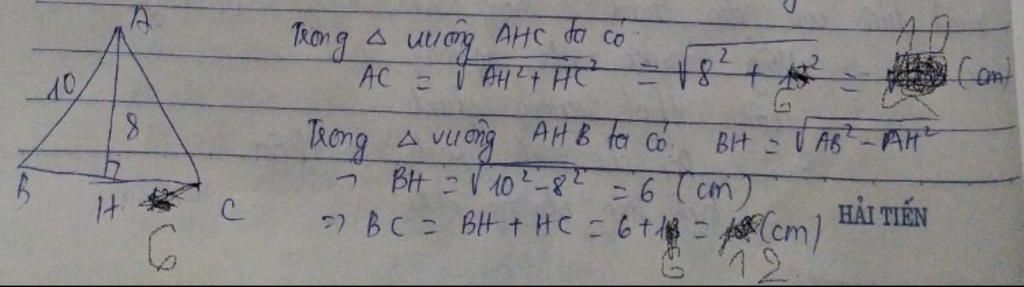 A
10
8
B
H
C
6
Trong △ vuông AHC ta có
AC = √AH² + HC² = √8² + 6² = 10 (cm)
Trong △ vuông AHB ta có BH = √AB² - AH²
BH = √10² - 8² = 6 (cm)
=> BC = BH + HC = 6 + 6 = 12 (cm)
HẢI TIẾN